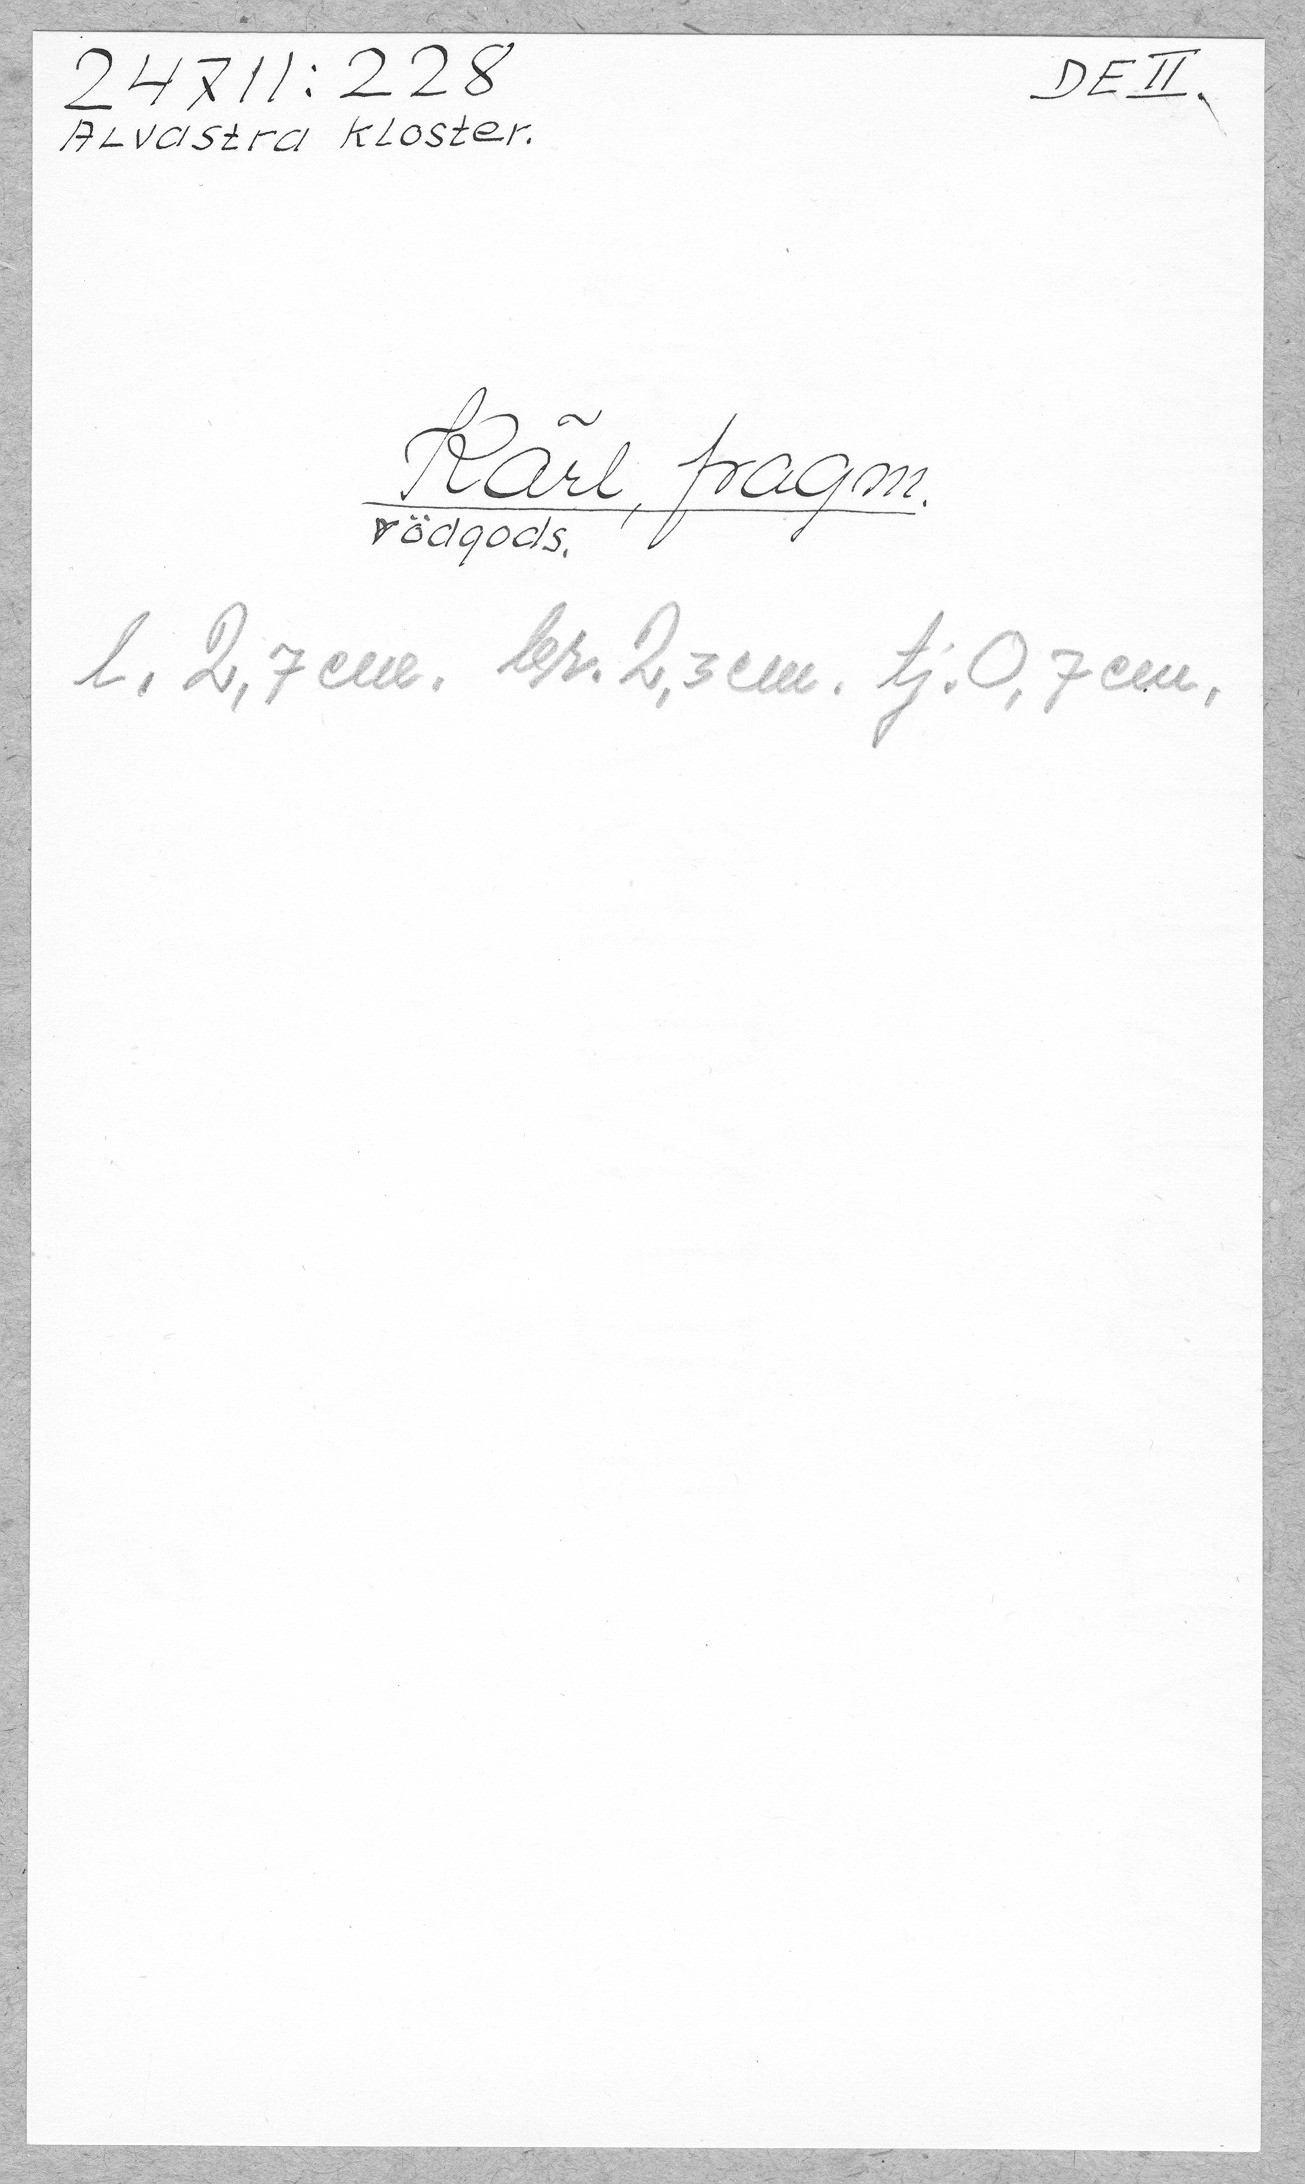 24711:228 DE II.
Alvastra kloster.
Kärl, fragm.
rödgods.
l. 2,7 cm. br. 2,3 cm. tj. 0,7 cm.